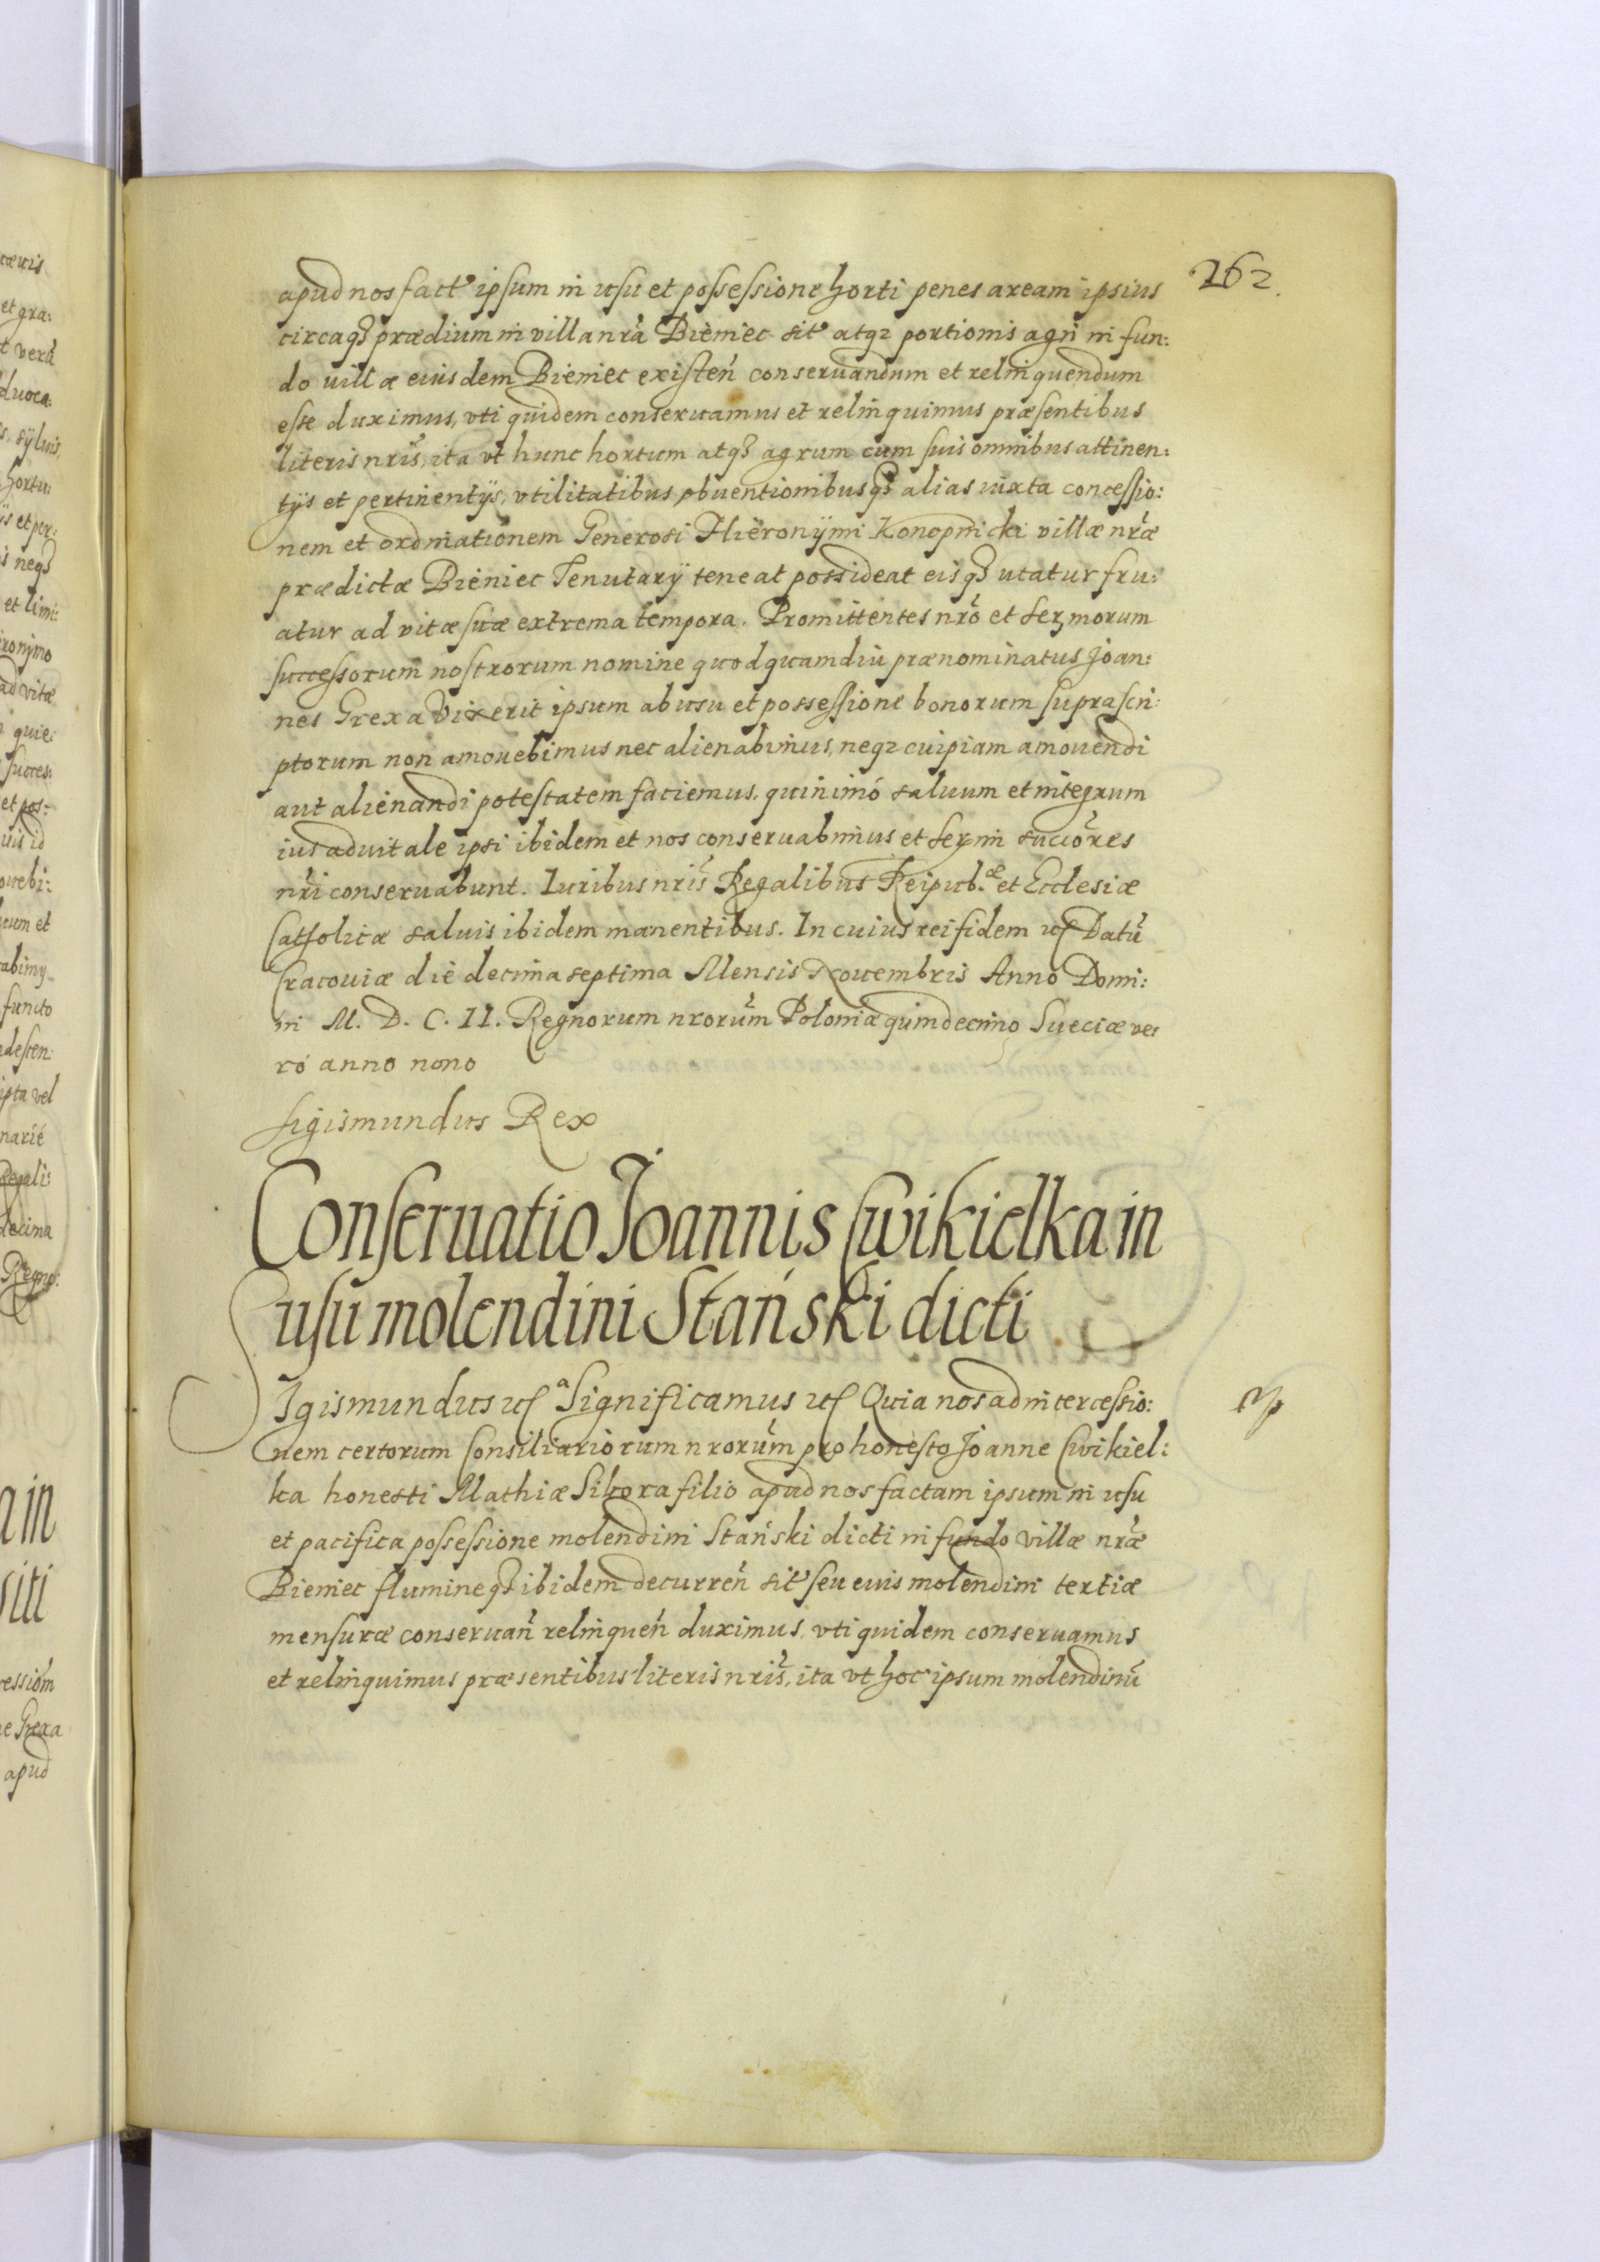 262.
apud nos fact ipsum in usu et possessione horti penes aream ipsius
circaqȝ prædium in villa nrã Bieniec sit atqȝ portionis agri in fun:
do villæ eiusdem Bieniec existeń conseruandum et relinquendum
esse duximus, vti quidem conseruamus et relinquimus præsentibus
literis nris̃, ita vt hunc hortum atqȝ agrum cum suis omnibus attinen:
tijs et pertinentijs, vtilitatibus obuentionibusqȝ alias iuxta concessio:
nem et ordinationem Generosi Hieronÿmi Konopnicki villæ nræ̃
prædictæ Bieniec Tenutarÿ teneat possideat eisqȝ utatur fru:
atur ad vitæ suæ extrema tempora. Promittentes nrõ et Serȝmorum
successorum nostrorum nomine quod quamdiu prænominatus Joan:
nes Grexa vixerit ipsum ab usu et possessione bonorum suprascri:
ptorum non amouebimus nec alienabimus, neqȝ cuipiam amouendi
aut alienandi potestatem faciemus. quinimó saluum et integrum
ius aduitale ipsi ibidem et nos conseruabimus et Serȝmi succõres
nrĩ conseruabunt. Iuribus nris̃ Regalibus Reipub.æ et Ecclesiæ
Catholicæ saluis ibidem manentibus. In cuius rei fidem etc Datũ
Cracouiæ die decima septima Mensis Nouembris Anno Domi:
ni M. D. C. II. Regnorum nrorũm Poloniæ quindecimo Sueciæ ve:
ró anno nono
Sigismundus Rex
Conseruatio Joannis Cwikielka in
usu molendini Stański dicti
Sigismundus etc Significamus etc Quia nos ad intercessio:
nem certorum Consiliariorum nrorũm pro honesto Joanne Cwikiel:
ka honesti Mathiæ Sikora filio apud nos factam ipsum in usu
et pacifica possessione molendini Stański dicti in fundo villæ nræ̃
Bieniec flumineqȝ ibidem decurreń sit seu eius molendini tertiæ
mensuræ conseruań relinqueń duximus, vti quidem conseruamus
et relinquimus præsentibus literis nris̃, ita vt hoc ipsum molendinũ